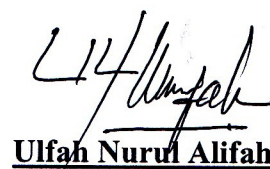 Ulfah Nurul Alifah